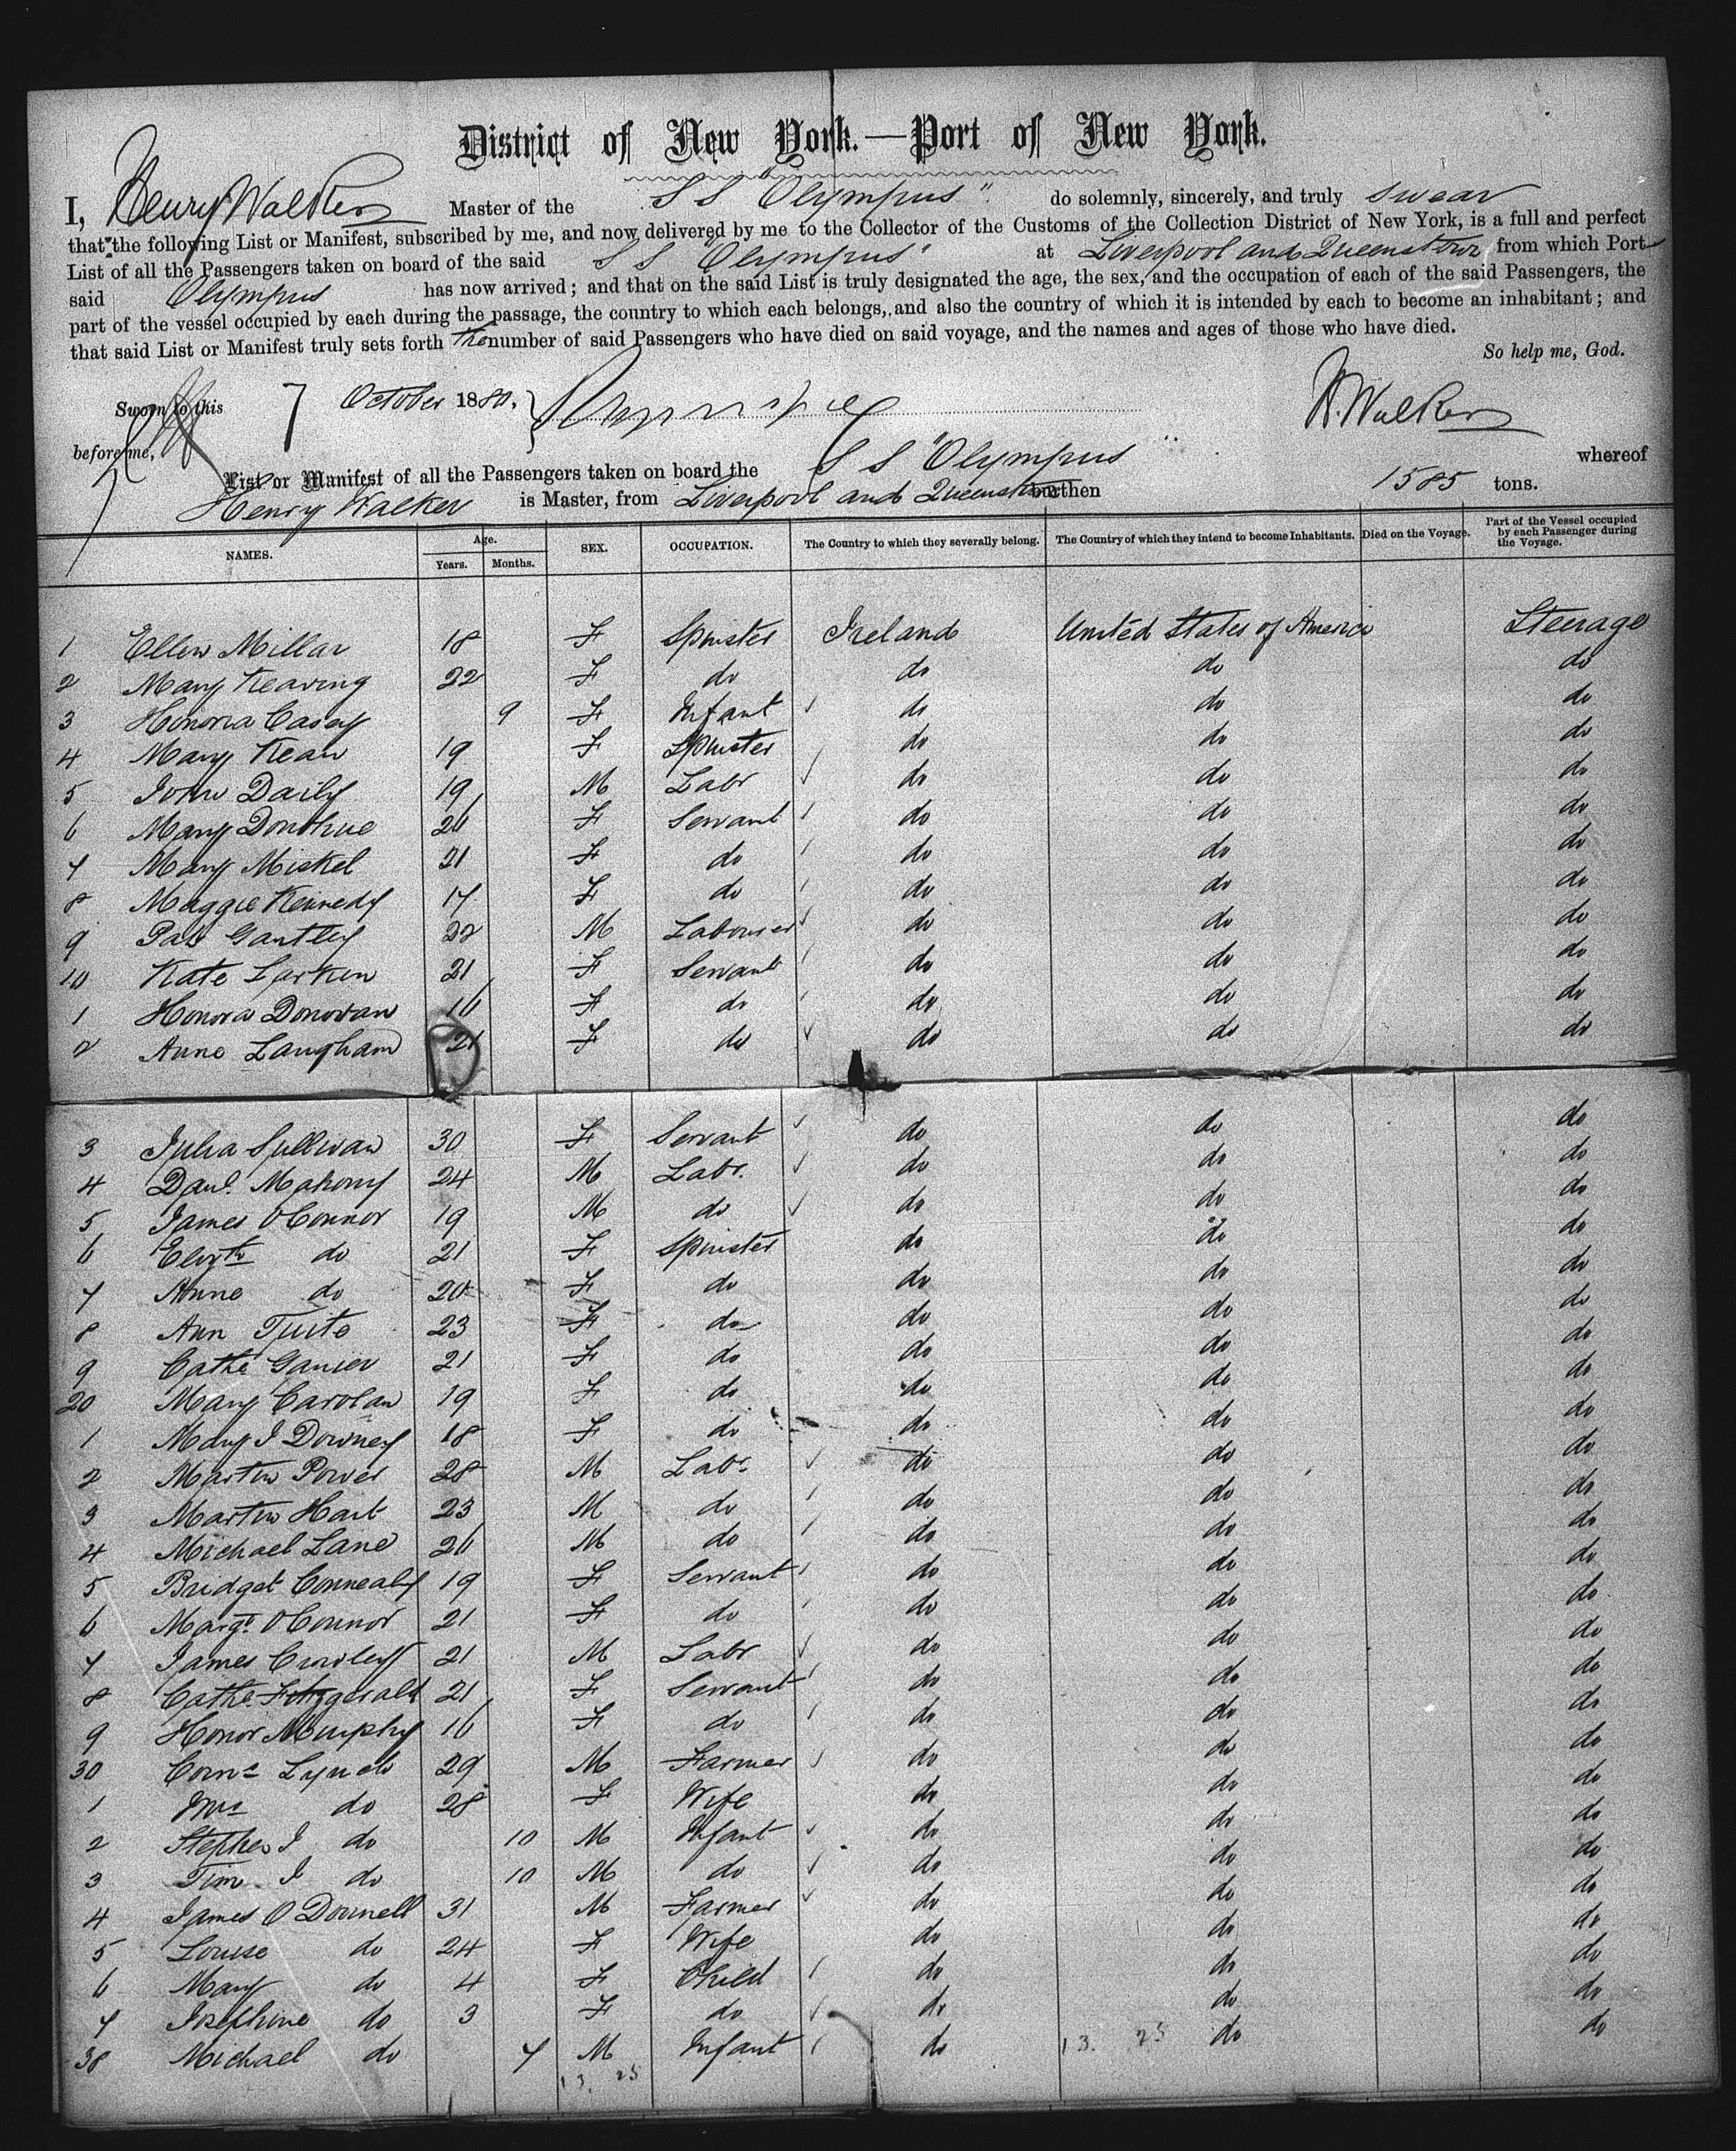 District of New York.—Port of New York.
I, Henry Walker Master of the S S "Olympus" do solemnly, sincerely, and truly swear
that the following List or Manifest, subscribed by me, and now delivered by me to the Collector of the Customs of the Collection District of New York, is a full and perfect
List of all the Passengers taken on board of the said S S "Olympus" at Liverpool and Queenstown from which Port
said Olympus has now arrived; and that on the said List is truly designated the age, the sex, and the occupation of each of the said Passengers, the
part of the vessel occupied by each during the passage, the country to which each belongs, and also the country of which it is intended by each to become an inhabitant; and
that said List or Manifest truly sets forth the number of said Passengers who have died on said voyage, and the names and ages of those who have died.
So help me, God.
Sworn to this 7 October 1880.
H. Walker
before me,
List or Manifest of all the Passengers taken on board the S S "Olympus" whereof
Henry Walker is Master, from Liverpool and Queenstown burthen 1585 tons.
NAMES. Age. Years. Months. SEX. OCCUPATION. The Country to which they severally belong. The Country of which they intend to become Inhabitants. Died on the Voyage. Part of the Vessel occupied by each Passenger during the Voyage.
1 Ellen Millar 18 F Spinster Ireland United States of America Steerage
2 Mary Kearing 22 F do do do do
3 Honoria Casey 9 F Infant do do do
4 Mary Kean 19 F Spinster do do do
5 John Daily 19 M Labr do do do
6 Mary Donohue 26 F Servant do do do
7 Mary Miskel 21 F do do do do
8 Maggie Kennedy 17 F do do do do
9 Pat Gantley 22 M Labourer do do do
10 Kate Larken 21 F Servant do do do
1 Honora Donovan 16 F do do do do
2 Anne Langham 21 F do do do do
3 Julia Sullivan 30 F Servant do do do
4 Danl. Mahony 24 M Labr. do do do
5 James O'Connor 19 M do do do do
6 Elizth do 21 F Spinster do do do
7 Anne do 20 F do do do do
8 Ann Tuite 23 F do do do do
9 Cathe Ganier 21 F do do do do
20 Mary Carolan 19 F do do do do
1 Mary J Downey 18 F do do do do
2 Martin Power 28 M Labr. do do do
3 Martin Hart 23 M do do do do
4 Michael Lane 26 M do do do do
5 Bridget Connealy 19 F Servant do do do
6 Margt. O'Connor 21 F do do do do
7 James Crowley 21 M Labr do do do
8 Cathe Fitzgerald 21 F Servant do do do
9 Honor Murphy 16 F do do do do
30 Corns Lynch 29 M Farmer do do do
1 Mrs do 28 F Wife do do do
2 Stephen J do 10 M Infant do do do
3 Tim. J do 10 M do do do do
4 James O'Donnell 31 M Farmer do do do
5 Louise do 24 F Wife do do do
6 Mary do 4 F Child do do do
7 Josephine do 3 F do do do do
38 Michael do 7 M Infant do do do
13. 25 13. 25